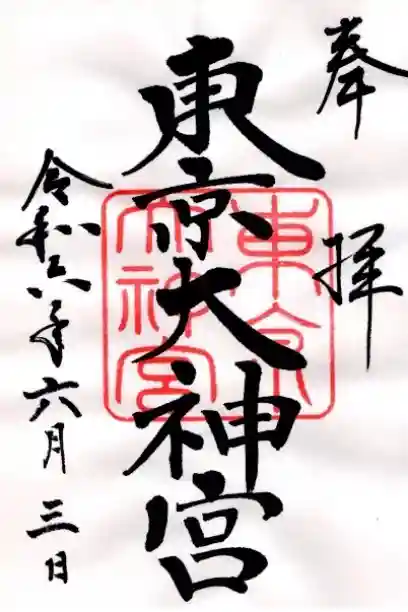 奉拝
東京大神宮
東京大神宮
令和六年六月三日